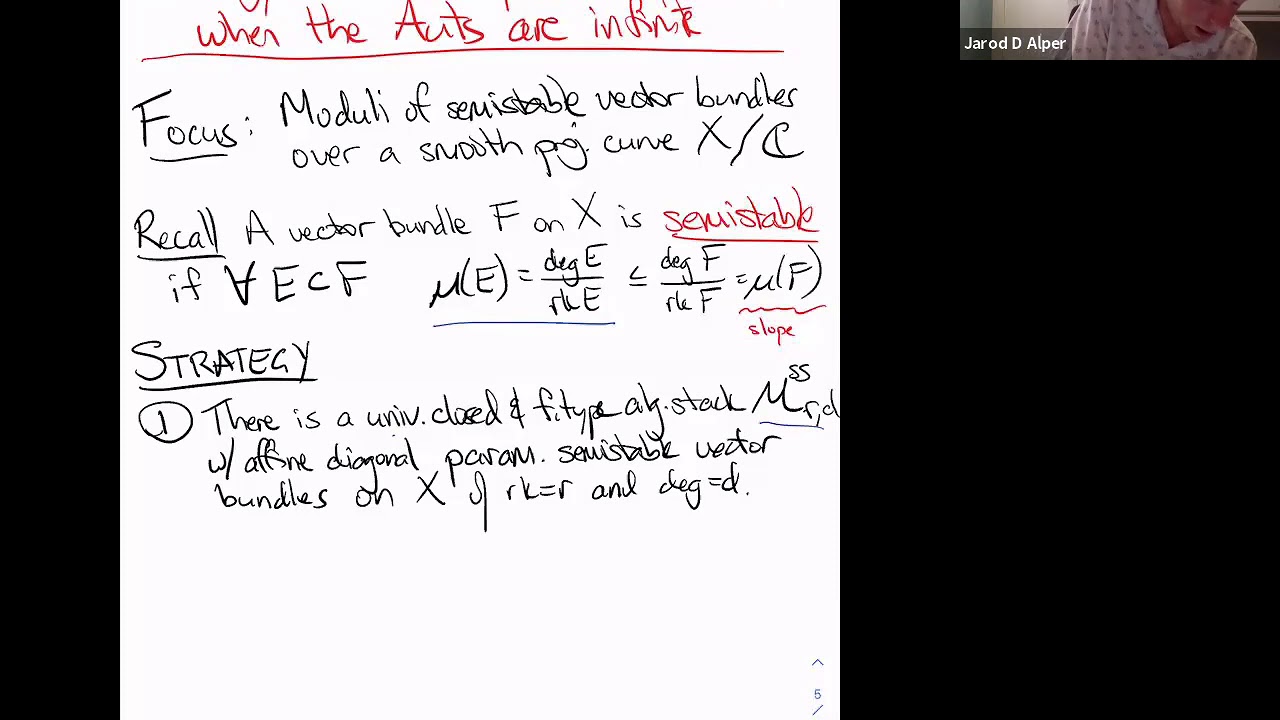 when the Auts are infinite
Jarod D Alper
Focus: Moduli of semistable vector bundles
over a smooth proj. curve X/ℂ
Recall A vector bundle F on X is semistable
if ∀ E⊂F μ(E) = deg E / rk E ≤ deg F / rk F = μ(F)
slope
STRATEGY
① There is a univ. closed & f. type alg. stack M^ss_r,d
w/ affine diagonal param. semistable vector
bundles on X of rk=r and deg=d.
5